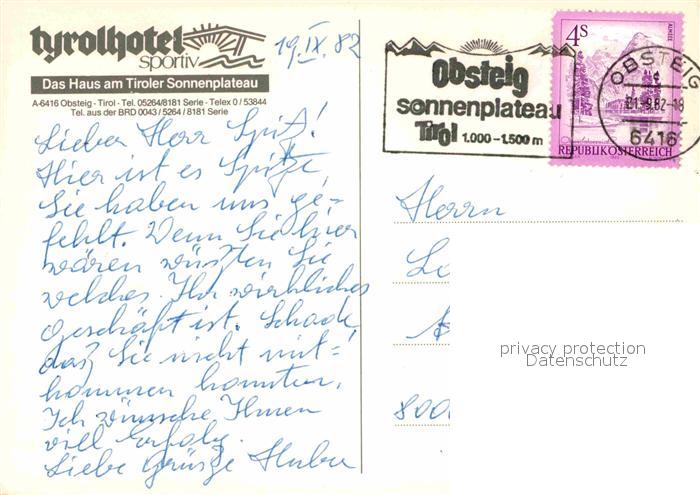 tyrolhotel
sportiv
Das Haus am Tiroler Sonnenplateau
A-6416 Obsteig - Tirol - Tel. 05264/8181 Serie - Telex 0 / 53844
Tel. aus der BRD 0043 / 5264 / 8181 Serie
19.IX.82
Lieber Herr Spitz!
Hier ist es Spitze,
Sie haben uns ge-
fehlt. Wenn Sie hier
wären wüßten Sie
welches Ihr wirkliches
Geschäft ist. Schade
daß Sie nicht mit-
kommen konnten.
Ich wünsche Ihnen
viel Erfolg.
Liebe Grüsze Huber
Obsteig
sonnenplateau
Tirol 1.000-1.500 m
4S
ALMSEE
REPUBLIK ÖSTERREICH
OBSTEIG
21.-9.82-18
6416
Herrn
800
privacy protection
Datenschutz